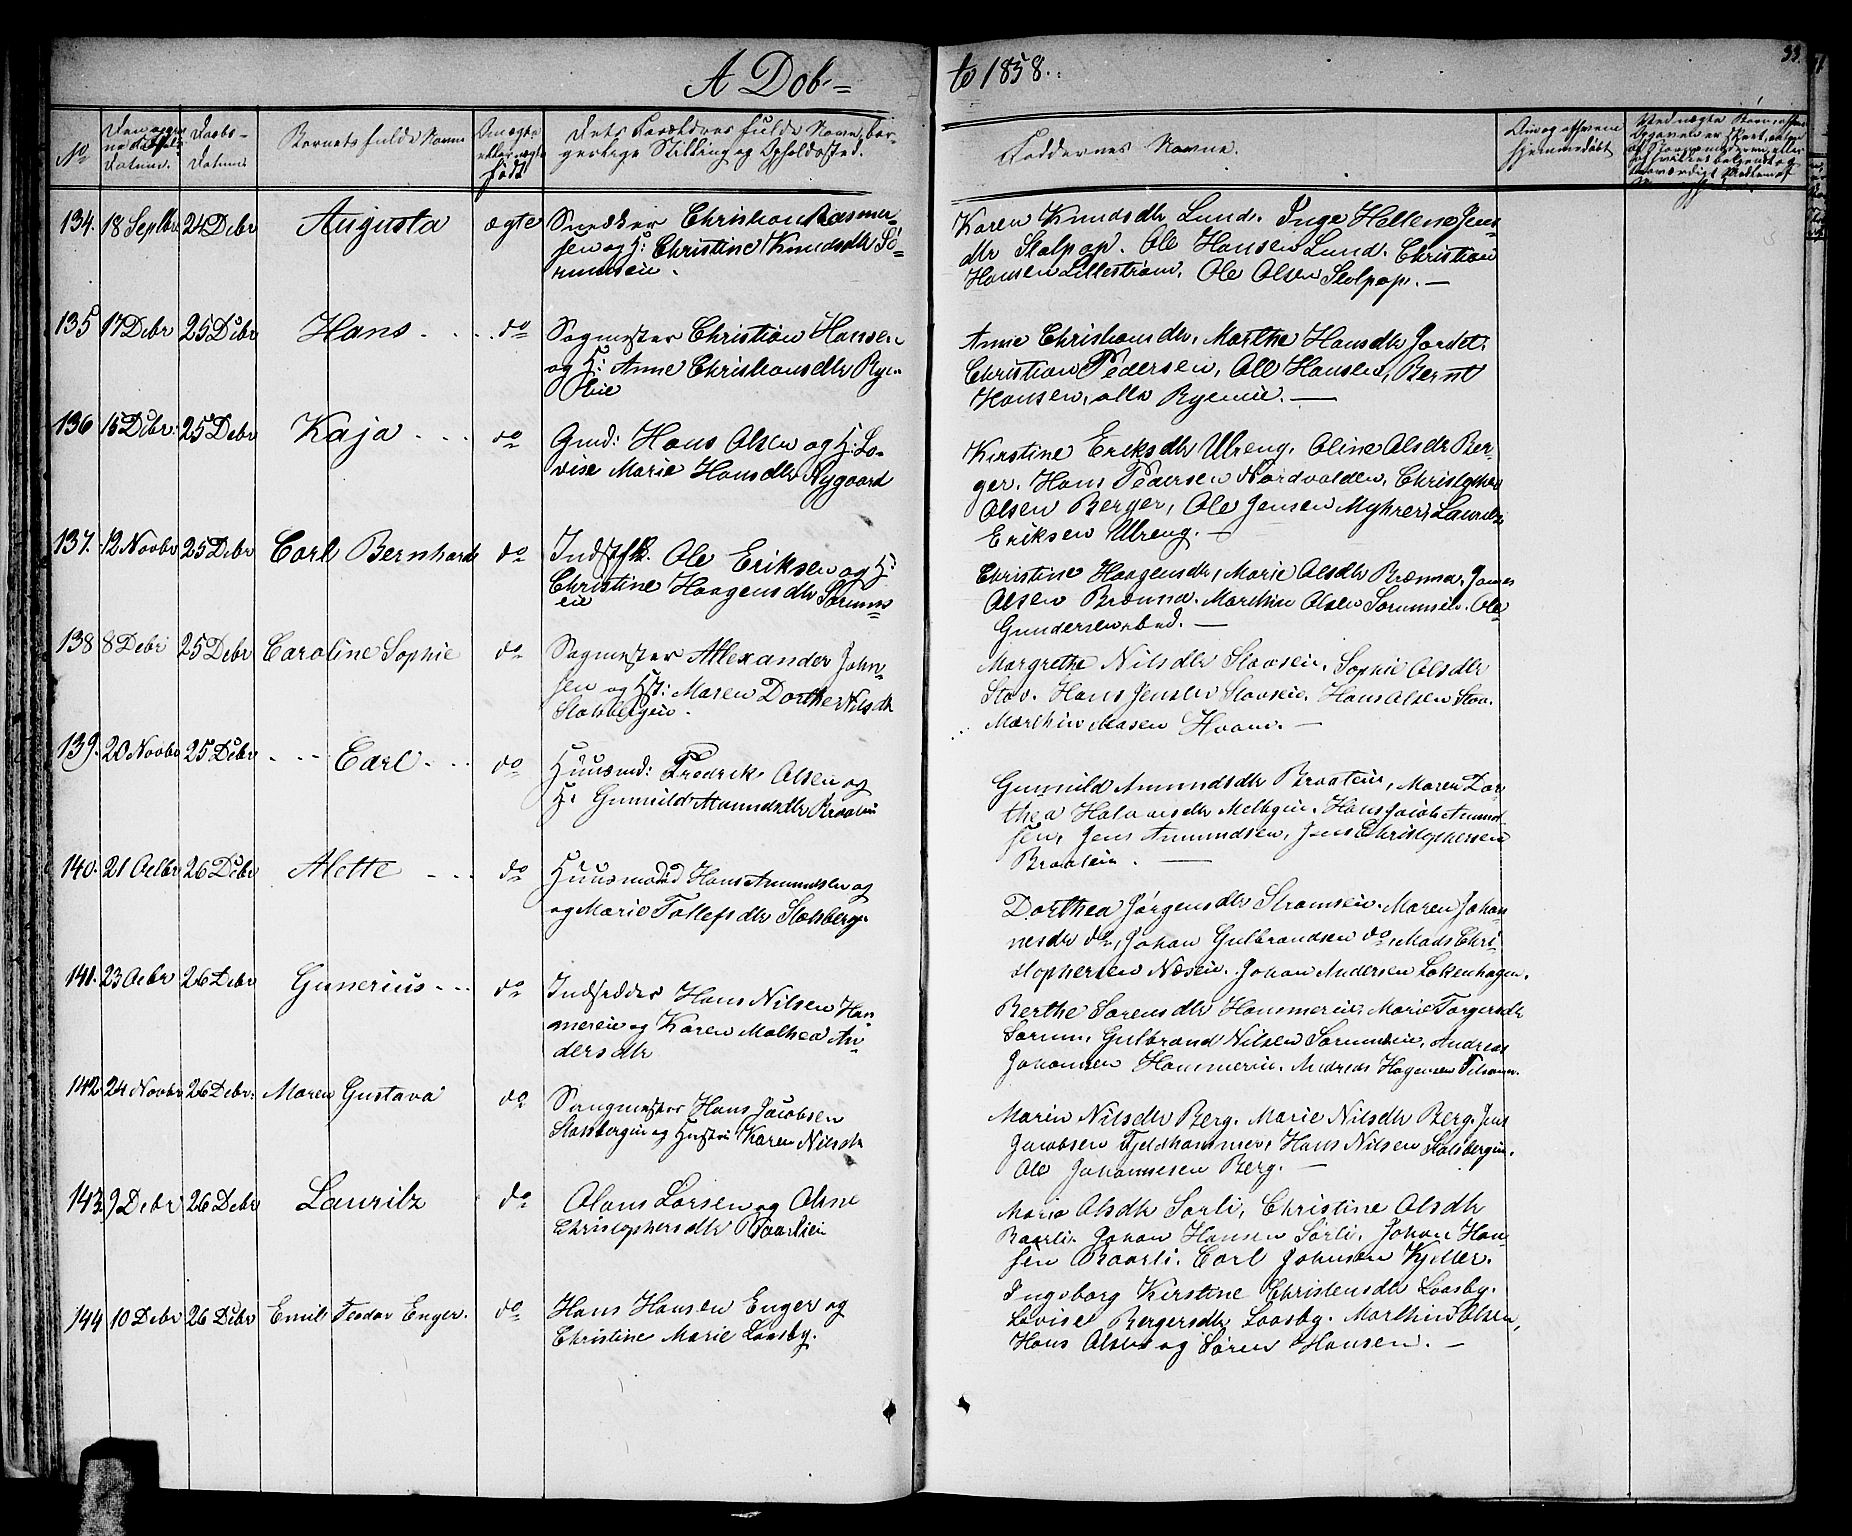 A Dob-
te 1858.
33.
No
Daabs-
Datum.
Barnets fulde Navne
født
Faddernes Navne.
hjemmedøbt
134. 18 Septbr 24 Debr Augusta ægte Snedker Christian Rasmus-
sen og H: Christine Knudsdtr Sö-
rumseie.
Karen Knudsdtr Lund. Inge Hellene Jens
dtr Stolpop. Ole Hansen Lund. Christian
Hansen Lillestrøm. Ole Olsen Stolpop. —
135 17 Debr 25 Debr Hans do Sagmester Christian Hansen
og H: Anne Christiansdtr Ryen-
eie
Anne Christiansdtr, Marthe Hansdtr Jordet.
Christian Pedersen, Ole Hansen, Bernt
Hansen, alle Ryeneie. —
136 15 Debr: 25 Debr Kaja do Gmd: Hans Olsen og H: Lo-
vise Marie Hansdtr Nygaard
Kirstine Eriksdtr Ulreng, Oline Olsdtr Ber-
ger. Hans Pedersen Nordvolden, Christopher
Olsen Berger, Ole Jensen Myhrer, Laurits
Eriksen Ulreng. —
137. 12 Novbr 25 Debr Carl Bernhard do Indst. Ole Eriksen og H:
Christine Haagensdtr Sørums
eie
Christine Haagensdtr, Marie Olsdtr Brænna. James
Olsen Brænna. Marthin Olsen Sørumseie. Ole
Gundersen ibid. —
138 8 Debr 25 Debr Caroline Sophie do Sagmester Allexander John-
sen og H: Maren Dorthe Nilsdtr
Stalsbergeie.
Margrethe Nilsdtr Stavseie. Sophie Olsdtr
Stav. Hans Jensen Stavseie. Hans Olsen Stav.
Marthin Masen Hvam. —
139. 20 Novbr 25 Debr Carl do Huusmd: Fredrik Olsen og
H: Gunnild Amundsdtr Braatein
Gunnild Amundsdtr Braatein, Maren Dor-
thea Halvorsdtr Melbyeie. Hans Jacob Amund
sen, Jens Amundsen, Jens Christophersen
Braatein. —
140. 21 Octbr 26 Debr Alette do Huusmand Hans Amundsen og
og Marie Tollefsdtr Stalsberg
Dorthea Jørgensdtr Strømseie. Maren Johan
nesdtr do, Johan Gulbrandsen do, Mads Chri-
stophersen Næseie. Johan Andersen Løkenhagen.
141. 23 Octbr 26 Debr Gunerius do Indsidder Hans Nilsen Ham
mereie og Karen Mathea An-
dersdtr
Berthe Sørensdtr Hammereie, Marie Torgersdtr
Sørum, Gulbrand Nilsen Sørumseie, Andreas
Johansen Hammereie. Andreas Hagensen
142 24 Novbr 26 Debr. Maren Gustava do Saugmester Hans Jacobsen
Stalsbergeie og Hustru Karen Nilsdtr
Maren Nilsdtr Berg. Marie Nilsdtr Berg. Jens
Jacobsen Fjeldhammer, Hans Nilsen Stalsbergeie.
Ole Johannesen Berg. —
143 9 Debr 26 Debr Lauritz do Olaus Larsen og Oline
Christophersdtr
Maria Olsdtr Sørli, Christine Olsdtr
Baarli. Johan Hansen Sørli, Johan Han-
sen Baarli. Carl Johnsen Kjeller.
144 10 Debr 26 Debr Emil Teodor Enger. do Hans Hansen Enger og
Christine Marie Loosby.
Ingeborg Kirstine Christensdtr Loosby.
Lovise Bergersdtr Loosby. Marthin Olsen,
Hans Olsen og Søren Hansen. —